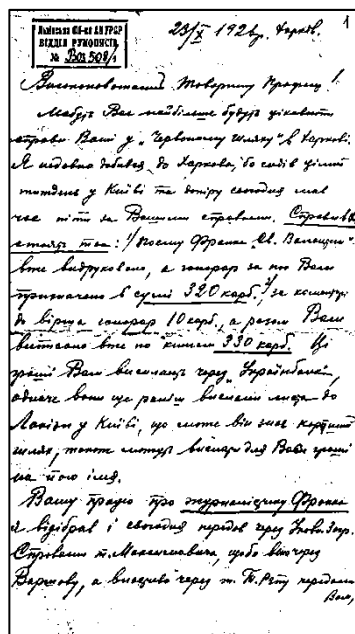 Львівська біб-ка АН УРСР
ВІДДІЛ РУКОПИСІВ
№ Воз 508/1
1
23/X 192 р. Харков.
Високоповажаний Товаришу Професор!
Мабуть Вас найбільше будуть цікавити
справи Ваші у "Червоному Шляху" в Харкові.
Я недавно добився до Харкова, бо сидів цілий
тиждень у Київі та допіру сьогодня мав
час піти за Вашими справами. Справи
стоять так: 1/ Поему Франка "Св. Валентий"
вже видруковано, а гонорар за неї Вам
призначено в сумі 320 карб. 2/ за коментар
до вірша гонорар 10 карб., а разом Вам
виписано вже по книгам 330 карб. Ці
гроші Вам висилають через "Українбанк",
одначе вони ще раніш вислали листа до
у Київі, що може він знає кортший
шлях, то може висилати для Вас гроші
на його імя.
Вашу працю про журналістику Франка
я відібрав і сьогодня передав через Уповн. Закр.
Справами т. Максимовича, щоби він через
Варшаву, а властиво через т. передали
Вам,